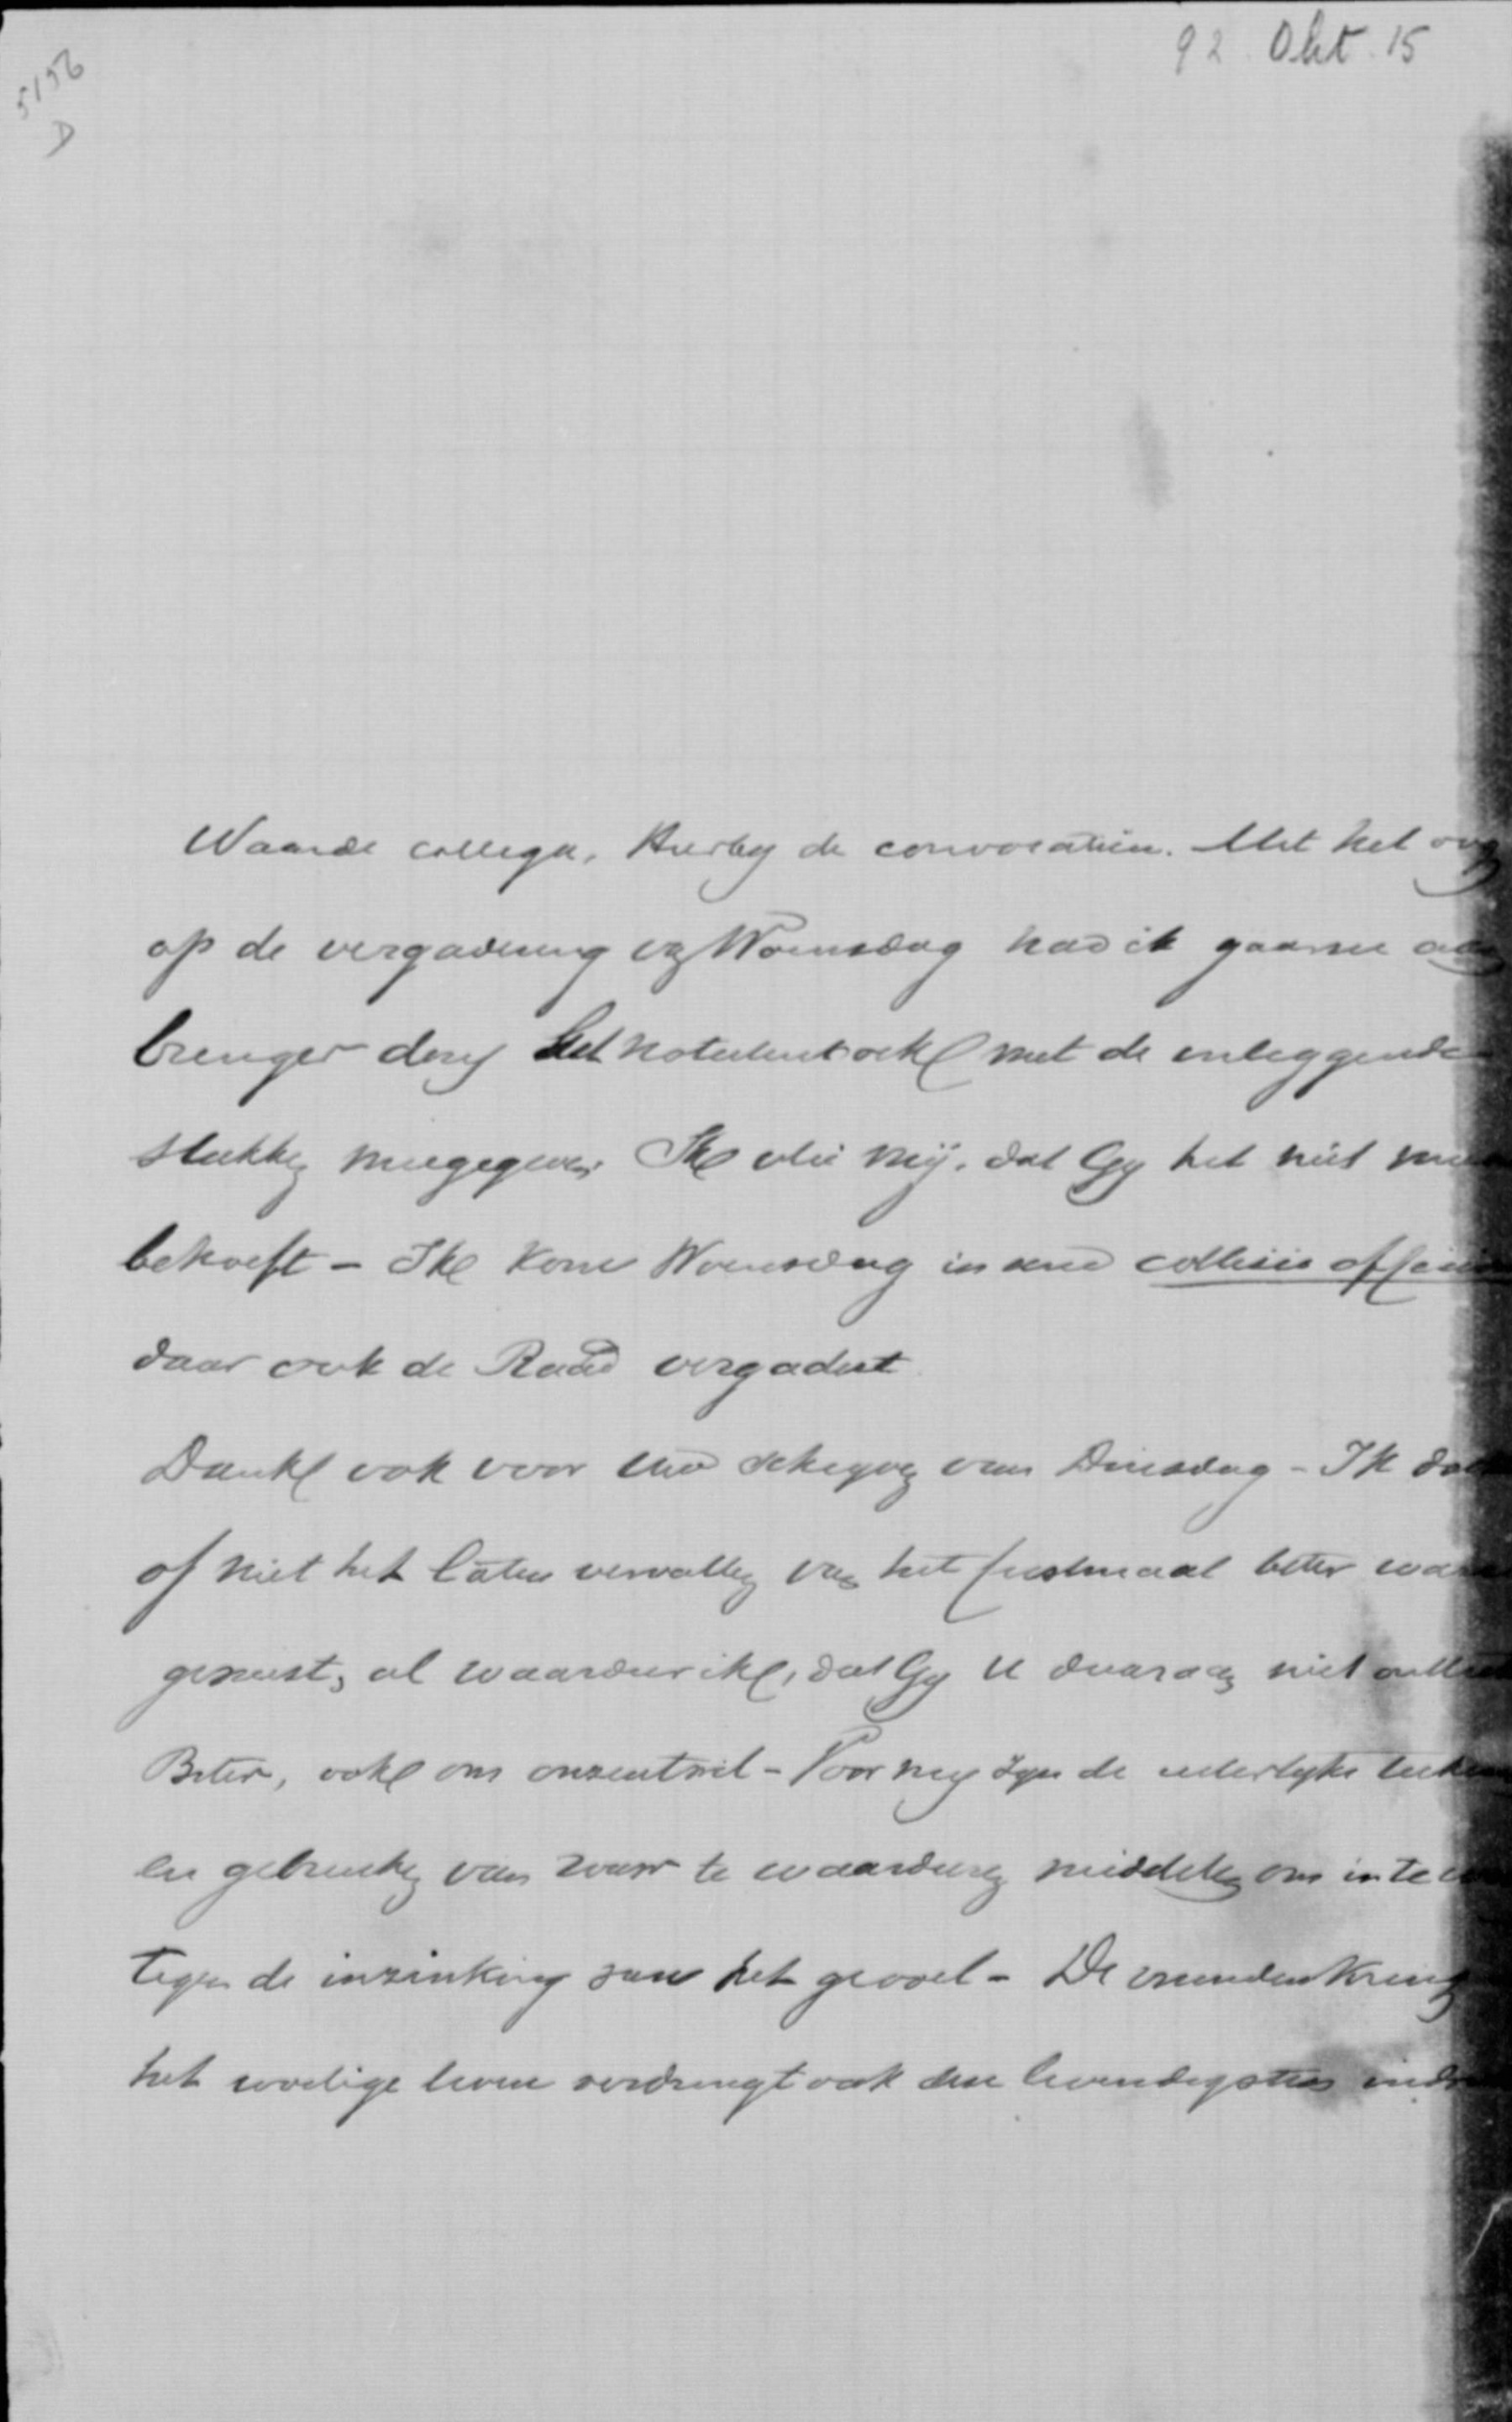 92. Okt. 15
5156
D
Waarde collega, Hierby de convocatien. Met het oog
op de vergadering op Woensdag had ik gaarne aan
brenger dezes het notulenboek met de inleggende
stukken meegegeven. Ik vlei mij, dat Gy het niet meer
behoeft - Ik kom Woensdag in eene collisio officiorum
daar ook de Raad vergadert.
Dank ook voor Uw schryven van Dinsdag - Ik
of niet het laten vervallen van het feestmaal beter ware
geweest, al waardeer ik, dat Gy U daaraan niet
Beter, ook om onzentwil - Voor my zyn de uiterlyke
en gebruiken van zeer te waardeeren middelen om in te
tegen de inzinking van het gevoel - De vriendenkring
het woelige leven verdringt ook den levendigsten